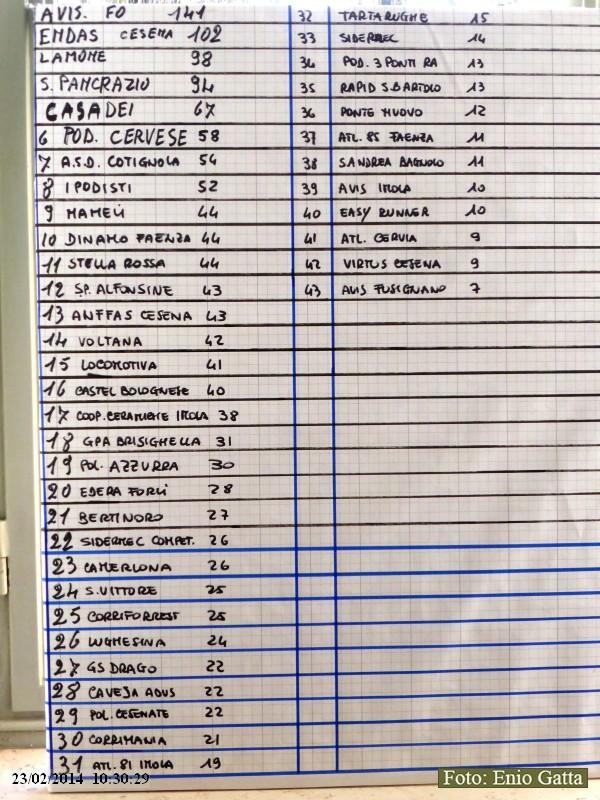 AVIS. FO 141
ENDAS CESENA 102
LAMONE 98
S. PANCRAZIO 94
CASADEI 67
6 POD. CERVESE 58
7 A.S.D. COTIGNOLA 54
8 IPODISTI 52
9 MAMELI 44
10 DINAMO FAENZA 44
11 STELLA ROSSA 44
12 SP. ALFONSINE 43
13 ANFFAS CESENA 43
14 VOLTANA 42
15 LOCOMOTIVA 41
16 CASTEL BOLOGNESE 40
17 COOP. CERAMICHE IMOLA 38
18 GPA BRISIGHELLA 31
19 POL. AZZURRA 30
20 EDERA FORLÌ 28
21 BERTINORO 27
22 SIDERMEC COMPET. 26
23 CAMERLONA 26
24 S. VITTORE 25
25 CORRIFORREST 25
26 LUGHESINA 24
27 GS DRAGO 22
28 CAVEJA ADVS 22
29 POL. CESENATE 22
30 CORRIMANIA 21
31 ATL. 81 IMOLA 19
32 TARTARUGHE 15
33 SIDERMEC 14
34 POD. 3 PONTI RA 13
35 RAPID S.BARTOLO 13
36 PONTE NUOVO 12
37 ATL. 85 FAENZA 11
38 S.ANDREA BAGNOLO 11
39 AVIS IMOLA 10
40 EASY RUNNER 10
41 ATL. CERVIA 9
42 VIRTUS CESENA 9
43 AVIS FUSIGNANO 7
23/02/2014 10:30:29
Foto: Enio Gatta